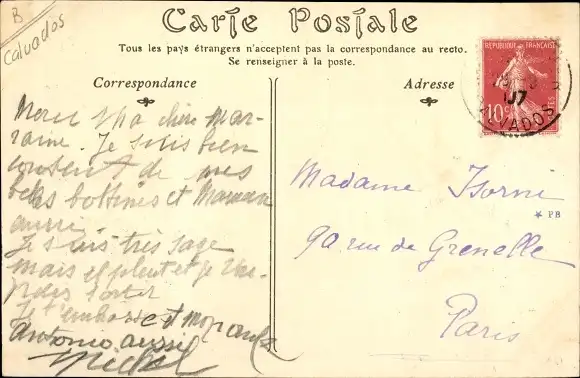 B
Calvados
Carte Postale
Tous les pays étrangers n'acceptent pas la correspondance au recto.
Se renseigner à la poste.
Correspondance
Adresse
RÉPUBLIQUE FRANÇAISE
10c POSTES
07
CALVADOS
Merci ma chère mar-
raine. Je suis bien
content de mes
belles bottines et Maman
aussi.
Je suis très sage
mais il pleut et je ne
sortir
Je t'embrasse et mon oncle
Antonio aussi
Michel
Madame Isorni
* PB
90 rue de Grenelle
Paris